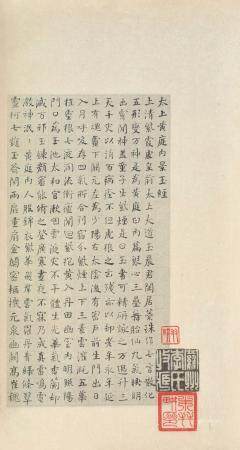 太上黃庭內景玉經
上清紫霞虛皇前太上大道玉晨君閒居蘂珠作七言散化
五形變萬神是為黃庭曰內篇琴心三疊舞胎仙九氣映明
出霄間神蓋童子生紫煙是曰玉書可精研詠之萬過昇三
天千災以消百病痊不憚虎狼之凶殘亦以却老年永延
上有魂靈下關元左為少陽右太陰後有密戶前生門出日
入月呼吸存四氣所合列宿分紫煙上下三素雲灌溉五華
植靈根七液洞流衝廬間迴紫抱黃入丹田幽室內明照陽
門口為玉池太和官漱咽靈液災不干體生光華氣香蘭却
滅百邪玉鍊顏審能脩之登廣寒晝夜不寐乃成真雷鳴電
激神泯泯黃庭內人服錦衣紫華飛裙雲氣羅丹青綠條翠
靈柯七蕤玉籥閉兩扉重扇金關密樞機玄泉幽闕高崔巍